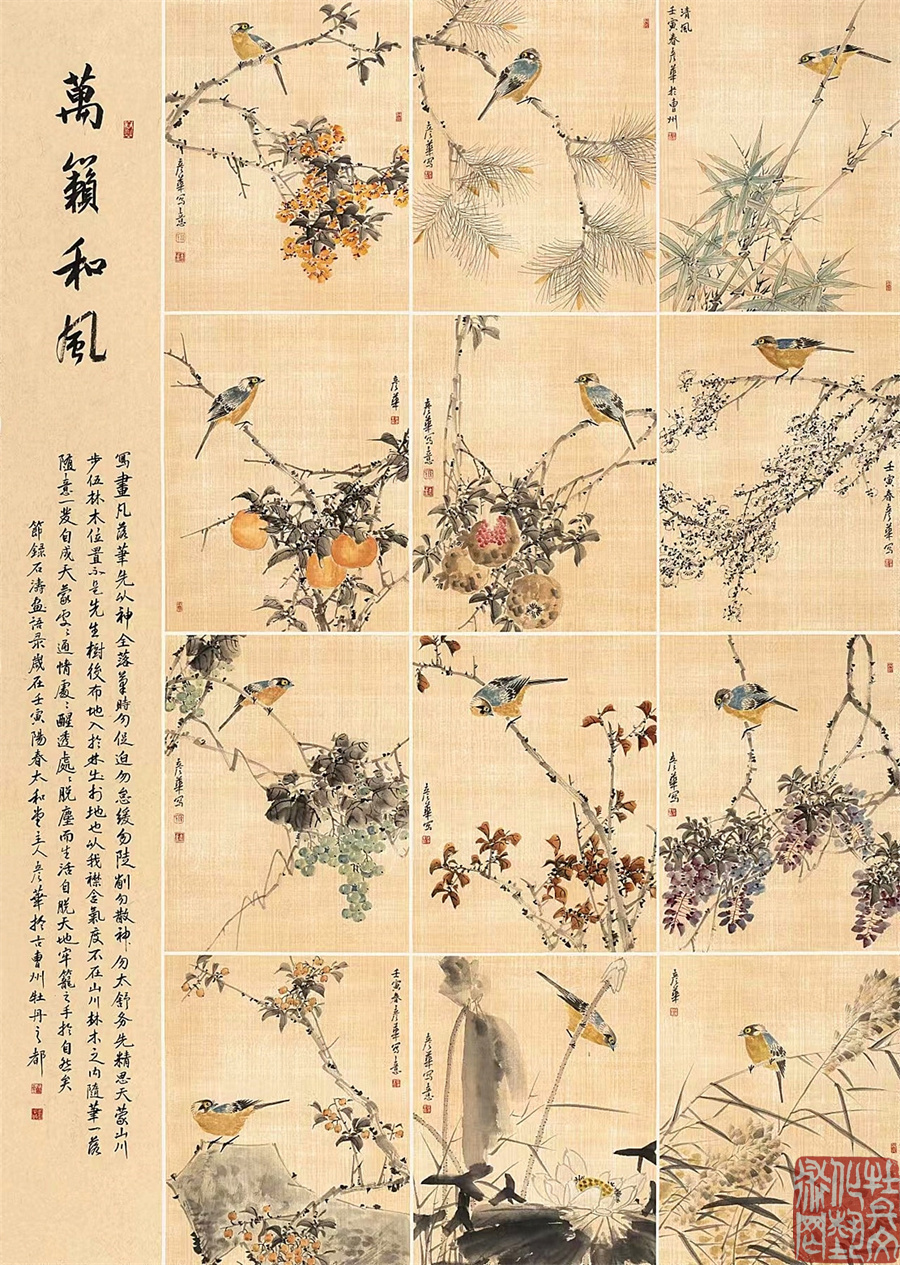 萬籟和風
寫畫凡落筆先以神全落筆時勿促迫勿怠緩勿陡削勿散神勿太舒务先精思天蒙山川
步伍林木位置不是先生樹後布地入於林出於地也以我襟含氣度不在山川林木之内隨筆一落
隨意一发自成天蒙处々通情處々醒透處々脱塵而生活自脱天地牢籠之手於自然矣
節録石濤画語录歲在壬寅陽春太和堂主人彦華於古曹州牡丹之都
彦華写意
彦華写
清風
壬寅春彦華於曹州
彦華
彦華写意
壬寅春彦華写
彦華写
彦華写
彦華写
壬寅春彦華写意
彦華写意
彦華